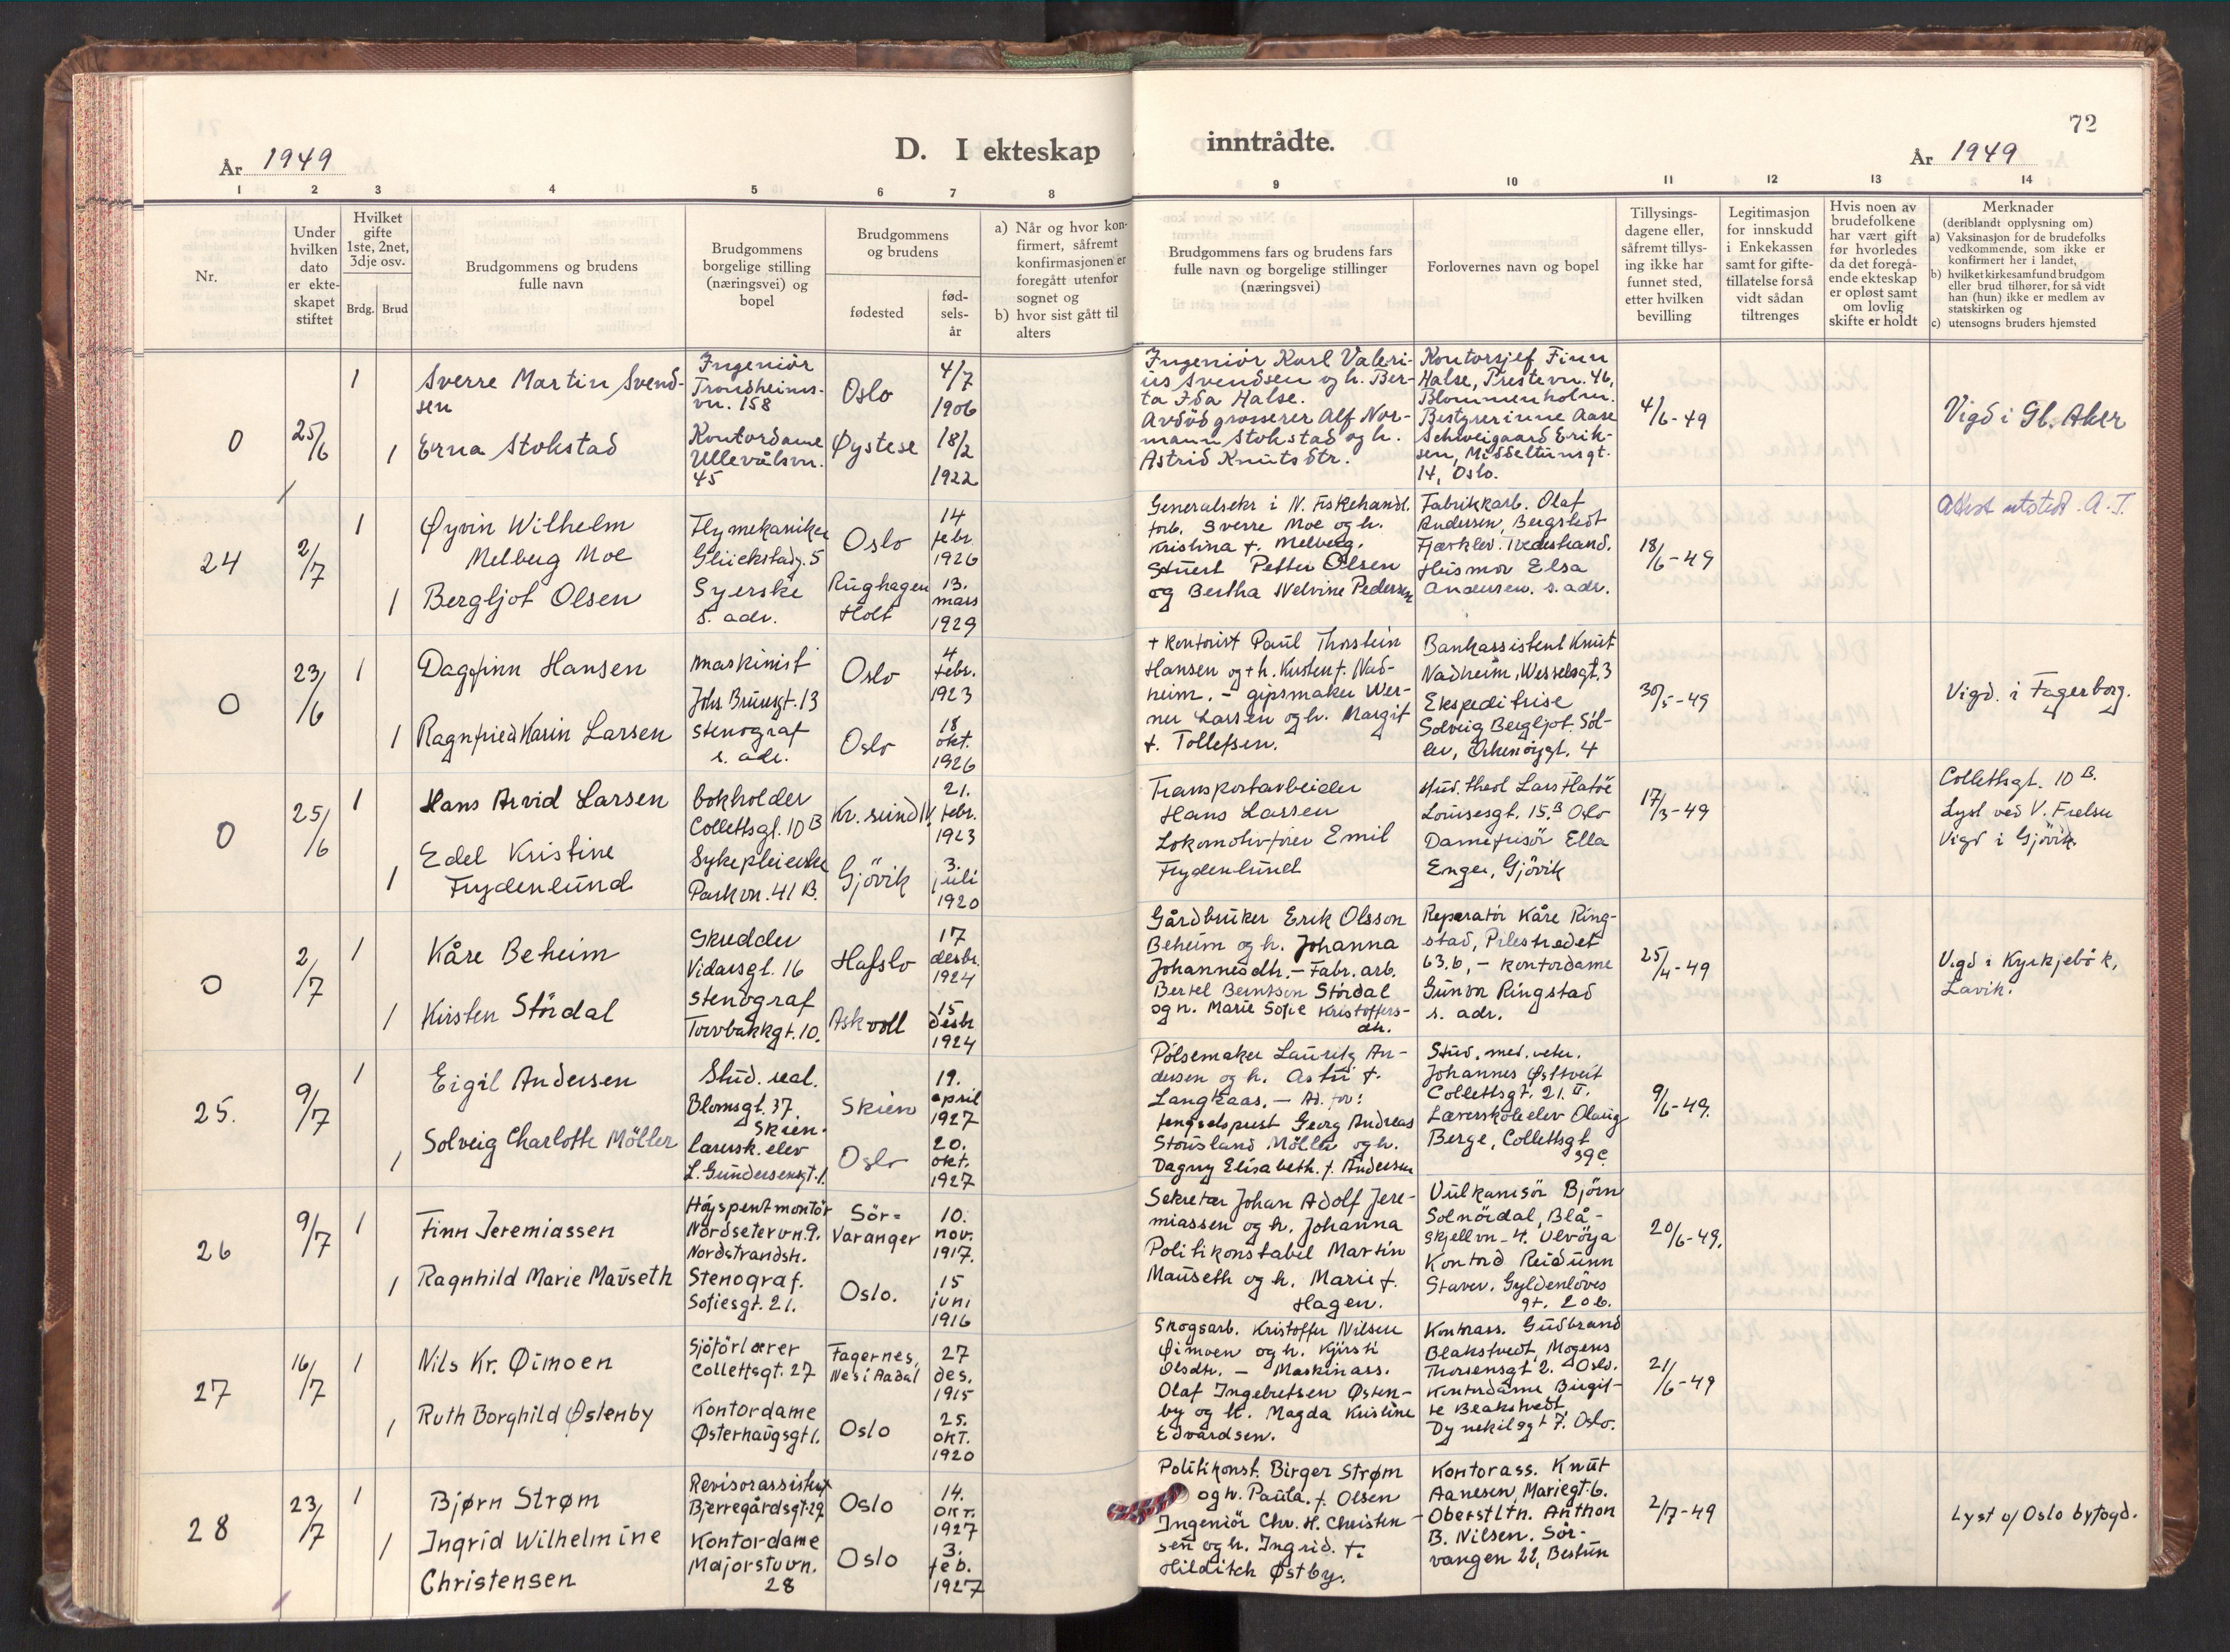 72
D. I ekteskap inntrådte.
År 1949
År 1949
1 2 3 4 5 6 7 8 9 10 11 12 13 14
Nr.
Under hvilken dato er ekteskapet stiftet
Hvilket gifte 1ste, 2net, 3dje osv.
Brdg. Brud
Brudgommens og brudens fulle navn
Brudgommens borgelige stilling (næringsvei) og bopel
Brudgommens og brudens
fødested
fødselsår
a) Når og hvor konfirmert, såfremt konfirmasjonen er foregått utenfor sognet og
b) hvor sist gått til alters
Brudgommens fars og brudens fars fulle navn og borgelige stillinger (næringsvei)
Forlovernes navn og bopel
Tillysingsdagene eller, såfremt tillysing ikke har funnet sted, etter hvilken bevilling
Legitimasjon for innskudd i Enkekassen samt for giftetillatelse forså vidt sådan tiltrenges
Hvis noen av brudefolkene har vært gift før hvorledes da det foregående ekteskap er opløst samt om lovlig skifte er holdt
Merknader
(deriblandt opplysning om)
a) Vaksinasjon for de brudefolks vedkommende, som ikke er konfirmert her i landet,
b) hvilket kirkesamfund brudgom eller brud tilhører, for så vidt han (hun) ikke er medlem av statskirken og
c) utensogns bruders hjemsted
0
25/6
1
Sverre Martin Svend-
sen
Ingeniör
Trondheims-
vn. 158
Oslo
4/7
1906
1
Erna Stokstad
Kontordame
Ullevålsvn.
45
Øystese
18/2
1922
Ingeniör Karl Valeri-
us Svendsen og h. Ber-
ta Ida Halse.
Avdöd grosserer Alf Nor-
mann Stokstad og h.
Astrid Knuts dtr.
Kontorsjef Finn
Halse, Prestevn. 46,
Blommenholm.
Bestyrerinne Aase
Schweigaard Erik-
sen, Middeltunsgt.
14, Oslo.
4/6-49
Vigd i Gl. Aker
24
2/7
1
Øyvin Wilhelm
Melberg Moe
Flymekaniker
Glückstadg. 5
Oslo
14
febr.
1926
1
Bergljot Olsen
Syerske
s. adr.
Rughagen
Holt
13.
mars
1929
Generalsekr i N. Fiskehandl.
forb. Sverre Moe og h.
Kristina f. Melberg.
Stuert Petter Olsen
og Bertha Welvine Pedersen
Fabrikkarb. Olaf
Andersen, Bergstedt
Fjærklev. Tvedestrand.
Husmor Elsa
Andersen. s. adr.
18/6-49
Attest utstedt. A. T.
0
23/6
1
Dagfinn Hansen
maskinist
Johs Brunsgt. 13
Oslo
4
febr.
1923
1
Ragnfried Karin Larsen
stenograf
s. adr.
Oslo
18
okt.
1926
+ kontorist Paul Thorstein
Hansen og + h. Kirsten f. Nad-
heim. - gipsmaker Wer-
ner Larsen og h. Margit
f. Tollefsen.
Bankassistent Knut
Nadheim, Wesselsgt. 3
Ekspeditrise
Solveig Bergljot Sol-
lev, Orknöygt. 4
30/5-49
Vigd. i Fagerborg.
0
25/6
1
Hans Arvid Larsen
bokholder
Collettsgt. 10 B
Kr. sund N.
21.
febr.
1923
1
Edel Kristine
Frydenlund
Sykepleierske
Parkvn. 41 B.
Gjövik
3.
juli
1920
Transportarbeider
Hans Larsen
Lokomotivförer Emil
Frydenlund
stud. theol Lars Flatöe
Louisesgt. 15.B Oslo
Damefrisör Ella
Enger, Gjövik
17/3-49
Collettsgt. 10 B.
Lyst ved V. Frelser
Vigd i Gjövik.
0
2/7
1
Kåre Beheim
Skredder
Vidarsgt. 16
Hafslo
17
desbr.
1924
1
Kirsten Stördal
stenograf
Torvbakkgt. 10.
Askvoll
15
desbr
1924
Gårdbruker Erik Olsson
Beheim og h. Johanna
Johannesdtr. - Fabr. arb.
Bertel Berntson Stördal
og h. Marie Sofie Kristoffers-
dtr.
Reparatör Kåre Ring-
stad, Pilestredet
63.b, - kontordame
Gunvor Ringstad
s. adr.
25/4-49
Vigd i Kyrkjebö k,
Lavik.
25.
9/7
1
Eigil Andersen
Stud. real.
Blomsgt. 37.
Skien.
Skien
19.
april
1927
1
Solveig Charlotte Möller
lærersk. elev
L. Gundersensgt. 1.
Oslo
20.
okt.
1927
Pölsemaker Lauritz An-
dersen og h. Astri f.
Langkaas. -
fengselsprest Georg Andreas
Stousland Möller og h.
Dagny Elisabeth. f. Andersen
Stud. med. veter.
Johannes Østtveit
Collettsgt. 21. II.
Lærerskoleelev Olaug
Berge, Collettsgt
39 c.
9/6-49.
26
9/7
1
Finn Jeremiassen
Höyspentmontör
Nordsetervn. 9.
Nordstrandsh.
Sör-
Varanger
10.
nov.
1917.
1
Ragnhild Marie Mauseth
Stenograf.
Sofiesgt. 21.
Oslo.
15
juni
1916
Sekretær Johan Adolf Jere-
miassen og h. Johanna
Politikonstabel Martin
Mauseth og h. Marie f.
Hagen.
Vulkanisör Björn
Solnördal, Blå-
skjellvn. 4. Ulvöya
Kontord Reidunn
Staver. Gyldenlöves
gt. 20 b.
20/6-49.
27
16/7
1
Nils Kr. Øimoen
Sjåförlærer
Collettsgt. 27
Fagernes,
Nes i Aadal
27
des.
1915
1
Ruth Borghild Østenby
Kontordame
Østerhaugsgt 1.
Oslo
25.
OKT.
1920
Skogsarb. Kristoffer Nilsen
Øimoen og h. Kjersti
Olsdtr. - Maskinass.
Olaf Ingebretsen Østen-
by og h. Magda Kristine
Edvardsen.
Kontorass. Gudbrand
Blakstvedt, Mogens
Thorsensgt 2. Oslo.
Kontordame Birgit-
te Blakstvedt
Dynekilsgt 7. Oslo.
21/6-49
28
23/7
1
Bjørn Strøm
Revisorassistent
Bjerregårdsgt 29
Oslo
14.
OKT.
1927
1
Ingrid Wilhelmine
Christensen
Kontordame
Majorstuvn.
28
Oslo
3.
feb.
1927
Politikonst. Birger Strøm
og h. Paula. f. Olsen
Ingeniör Chr. H. Christen-
sen og h. Ingrid. f.
Hilditch Østby.
Kontorass. Knut
Aanesen, Mariegt. 6.
Oberstltn. Anthon
B. Nilsen. Sör-
vangen 22, Bestun
2/7-49
Lyst v/ Oslo byfogd.